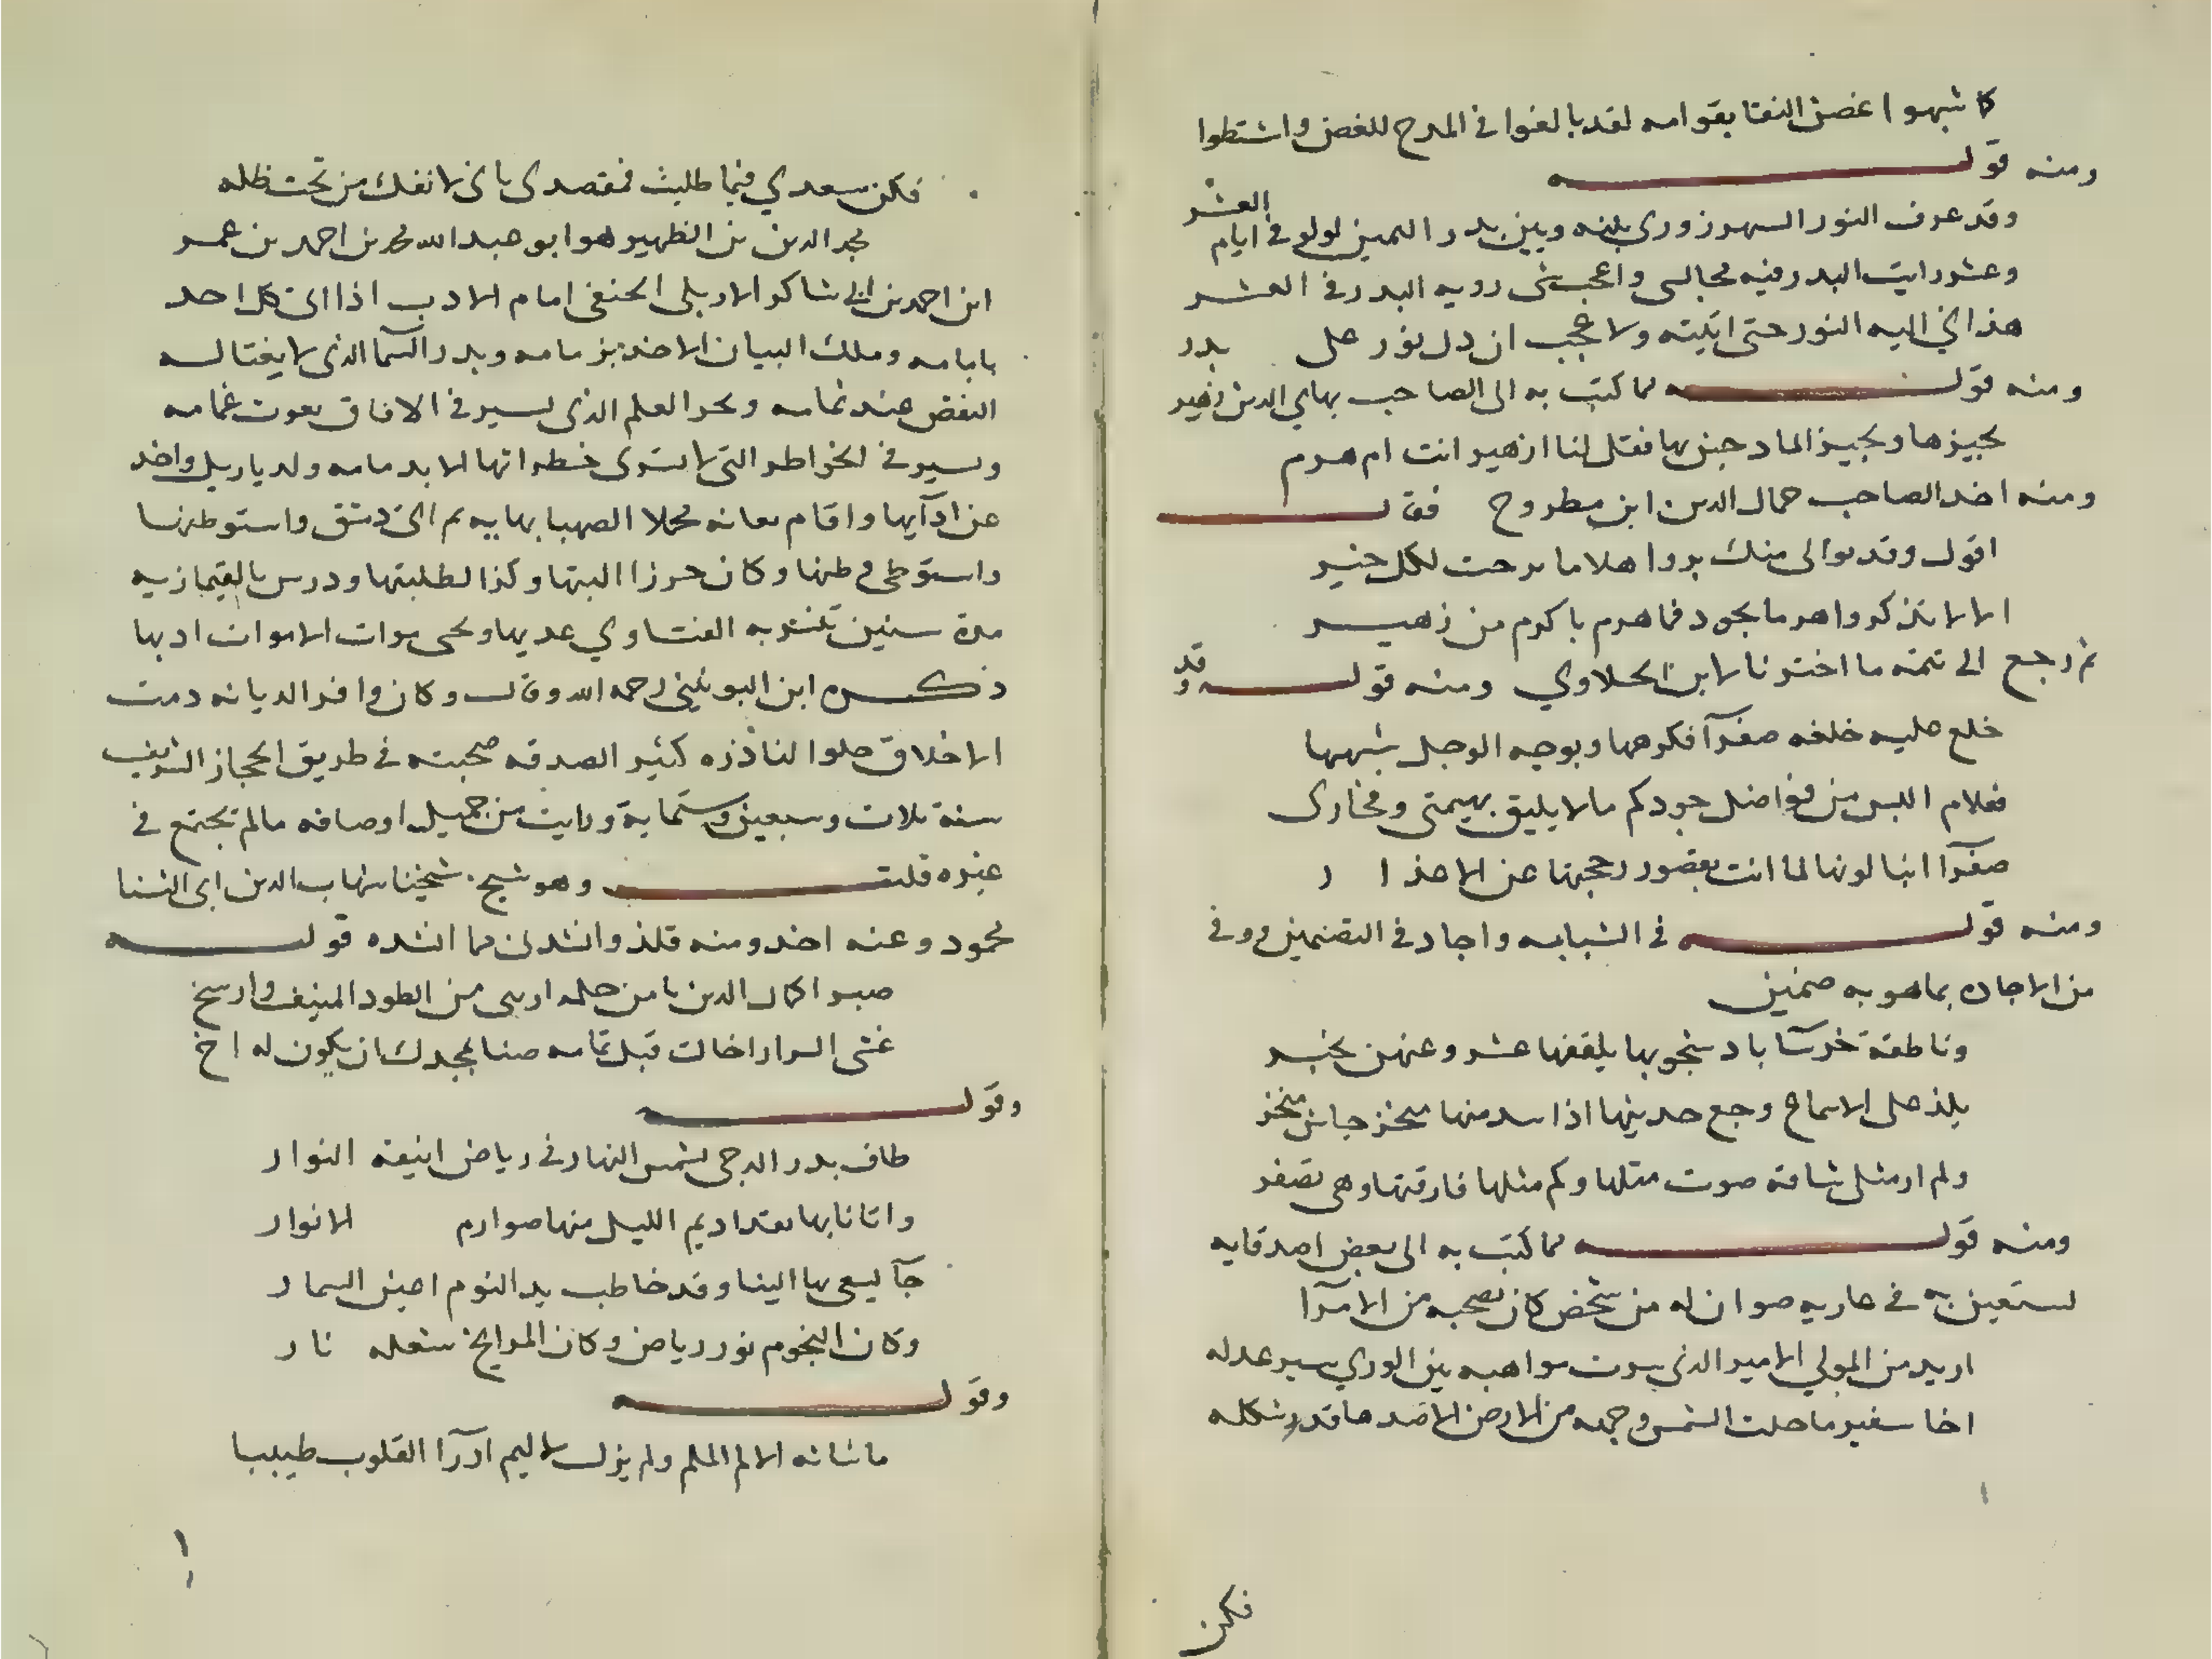 كا شبهوا غصن النقا بقوامه لقد بالغوا في المدح للغصن واشتطوا
ومنه قولـــه
وقد عرف النور السهرزوري بلينه وبين بدر الدين لولو في ايام العشر
وعشر رايت البدر فيه مجالسي واعجب شي رويه البدر في العشر
هذا في اليه النور حتى اتيته ولا عجب ان دل نور على بدر
ومنه قولـــه مما كتب به الى الصاحب بهاي الدين زهير
تجيزها وتجيز المادحين بها فقل لنا ازهير انت ام هرم
ومنه اخذ الصاحب جمال الدين ابن مطروح فقال
اقول وقد توالى منك بر واهلا ما برحت لكل خير
الا لا تذكروا هرما بجود فما هرم باكرم من زهير
ثم رجع الى تتمة ما اخترنا لابن الحلاوي ومنه قولـــه وقد
خلع عليه خلعه صفرآ فكرهها وبوجه الوجل شبهها
فعلام البس من فواضل جودكم ما لا يليق بهمتي وفخاري
صفرآ انبا لونها لما انت بقصور رحجبتها عن الاعذار
ومنه قولـــه في الشبابه واجاد في التضمين ووفى
من الاجاده بما هو به ضمين
وناطقة خرسآ باد شجوبها يلقفها عشر وعنهن تخبر
يلذ على الاسماع رجع حديثها اذا سد منها منخر جاش منخر
ولم ار مثلي شاقه صوت مثلها وكم مثلها فارقتها وهي تصفر
ومنه قولـــه مما كتب به الى بعض اصدقايه
يستعين به في عاريه صوان له من شخص كان يصحبه من الامرآ
اريد من المولى الامير الذي سرت مواهبه بين الورى سير عدله
اخا سفير ما حلت الشمس وجهه من الارض الا ضدها قدر شكله
فكن
فكن سعدي فيما طلبت فمقصدي باني لا انفك من تحت ظله
مجد الدين بن الظهير هو ابو عبد الله محمد بن احمد بن عمر
ابن احمد بن ابي شاكر الاربلي الحنفي امام الادب اذا اتى كل احد
بابامه وملك البيان الاخذ بزمامه وبدر السمآ الذي لا يغتاله
النقص عند تمامه وبحر العلم الذي يسير في الافاق بصوت غمامه
ويسير في الخواطر التي لا تسرى خطراتها الا بدمامه ولد باربل واخذ
عن ادآيها واقام بعانه محملا الصهبا بهابيه ثم اتى دمشق واستوطنها
واستوطى وطنها وكان حرزا لبيتها وكنزا لطلبتها ودرس بالقيمازيه
مدة سنين تنشر به الفتاوي عذبها ويحيى موات الاموات ادبها
ذكره ابن اليونيني رحمه الله وقال وكان وافر الديانه دمث
الاخلاق حلو النادره كثير الصدقه صحبته في طريق الحجاز الشريف
سنة ثلاث وسبعين وستماية ورايت من جميل اوصافه ما لم تجتمع في
غيره قلت وهو شيخ شيخنا شهاب الدين ابي الثنا
محمود وعنه اخذ ومنه فلذ وانشدني مما انشده قولـــه
صبرا كمال الدين يا من حلمه ارسى من الطود المنيف وارسخ
غشى السرار اخاك قبل تمامه ضنا بمجدك ان يكون له اخ
وقولـــه
طاف بدر الدجى بشمس النهار في رياض انيقة النوار
واتانا بها بقداديم الليل منها صوارم الانوار
جآ يسعى بها الينا وقد خاطب يد النوم اعين السمار
وكان النجوم نور رياض وكان المريخ شعله نار
وقولـــه
ما شانه الالم الملم ولم يزل لاليم ادوآ القلوب طبيبا